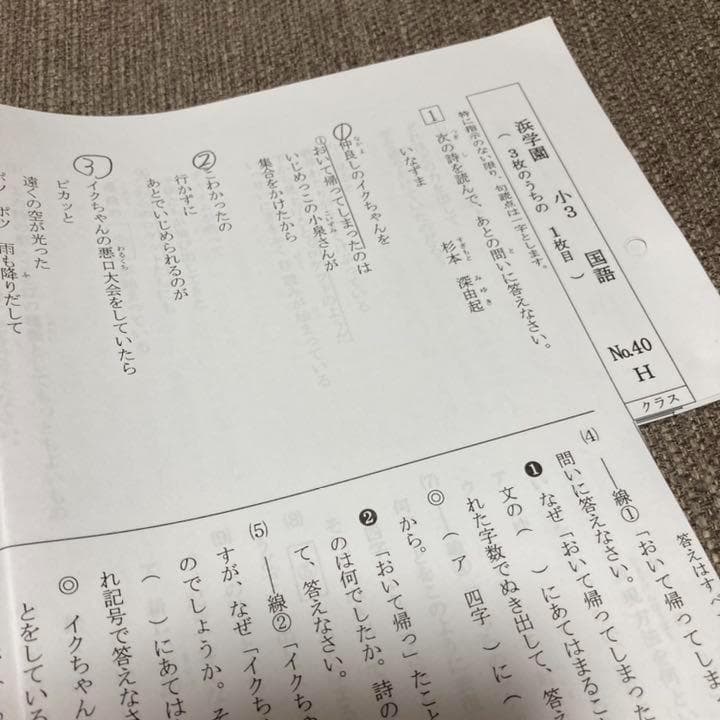 浜学園 小3 国語 No.40 H
(3枚のうちの 1枚目)
クラス
特に指示のない限り、句読点は一字とします。
1 次の詩を読んで、あとの問いに答えなさい。
いなずま
杉本 深由起
① 仲良しのイクちゃんを
①おいて帰ってしまったのは
いじめっこの小泉さんが
集合をかけたから
② こわかったの
行かずに
あとでいじめられるのが
③ イクちゃんの悪口大会をしていたら
ピカッと
遠くの空が光った
ポツ ポツ 雨も降りだして
答えはすべ
(4) ――線①「おいて帰ってしまった
問いに答えなさい。
❶ なぜ「おいて帰ってしま
文の( )にあてはまるこ
れた字数でぬき出して、答
◎ (ア 四字)に(
から。
❷ 「おいて帰っ」たこと
のは何でしたか。詩の
て、答えなさい。
(5) ――線②「イクち
すが、なぜ「イクちゃん
のでしょうか。そ
( )にあては
れ記号で答えなさ
◎ イクちゃん
とをしている